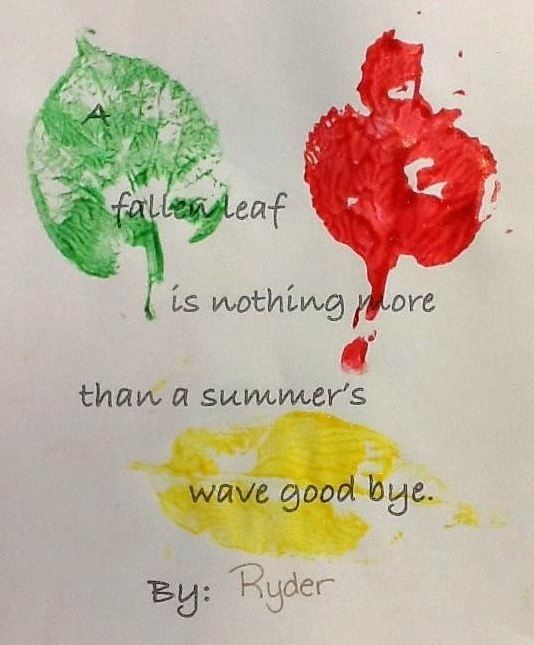 A
fallen leaf
is nothing more
than a summer's
wave good bye.
By: Ryder